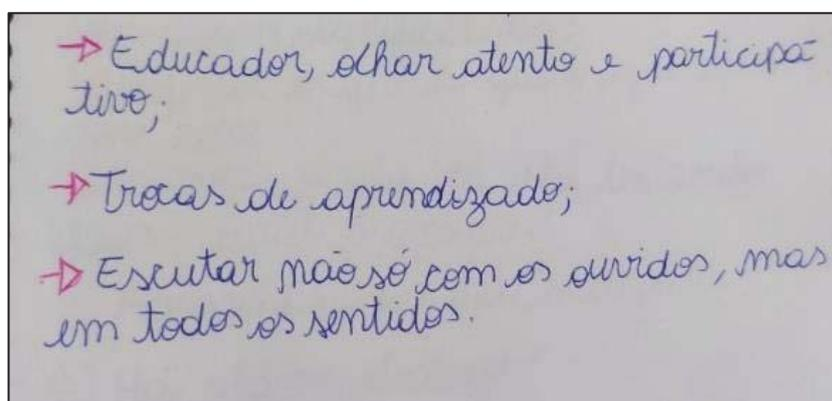 → Educador, olhar atento e participa-
tivo;
→ Trocas de aprendizado;
→ Escutar não só com os ouvidos, mas
em todos os sentidos.